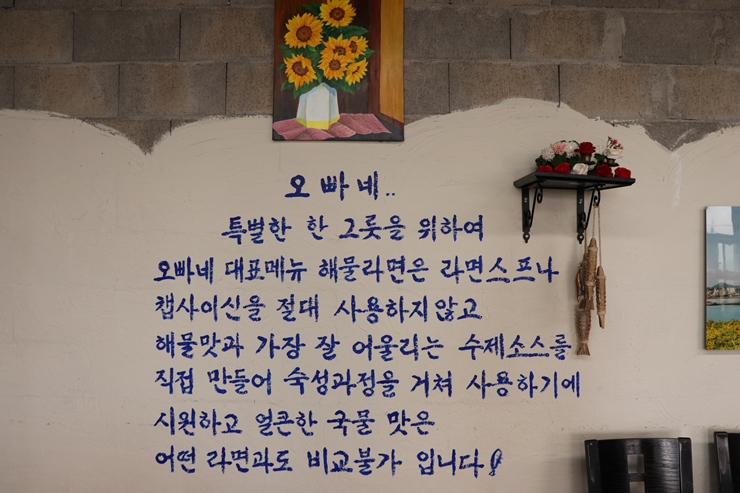 오빠네..
특별한 한 그릇을 위하여
오빠네 대표메뉴 해물라면은 라면스프나
캡사이신을 절대 사용하지않고
해물맛과 가장 잘 어울리는 수제소스를
직접 만들어 숙성과정을 거쳐 사용하기에
시원하고 얼큰한 국물 맛은
어떤 라면과도 비교불가 입니다!